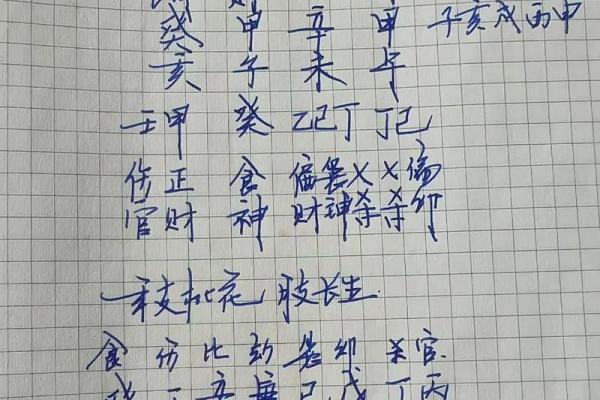 癸 甲 辛 甲 子亥戌丙申
亥 子 未 午
壬甲 癸 乙己丁 丁己
伤正 食 偏枭××偏
官财 神 财神杀杀卯
支桃花 长生
食 伤 比 劫 枭 卯 杀 官
辛 己 戊 丁 丙